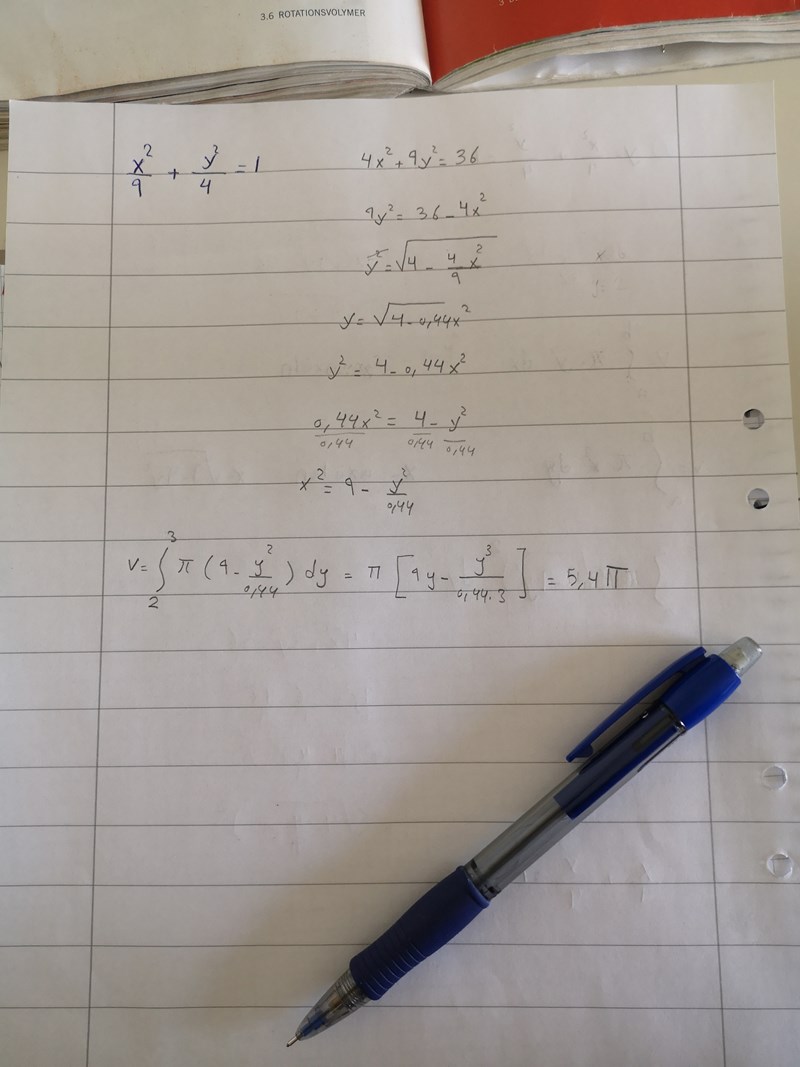 3.6 ROTATIONSVOLYMER
x²/9 + y²/4 = 1
4x² + 9y² = 36
9y² = 36 - 4x²
y² = √(4 - 4/9 x²)
y = √(4 - 0,44x²)
y² = 4 - 0,44x²
0,44x²/0,44 = 4/0,44 - y²/0,44
x² = 9 - y²/0,44
V = ∫₂³ π (9 - y²/0,44) dy = π [9y - y³/(0,44·3)] = 5,4π